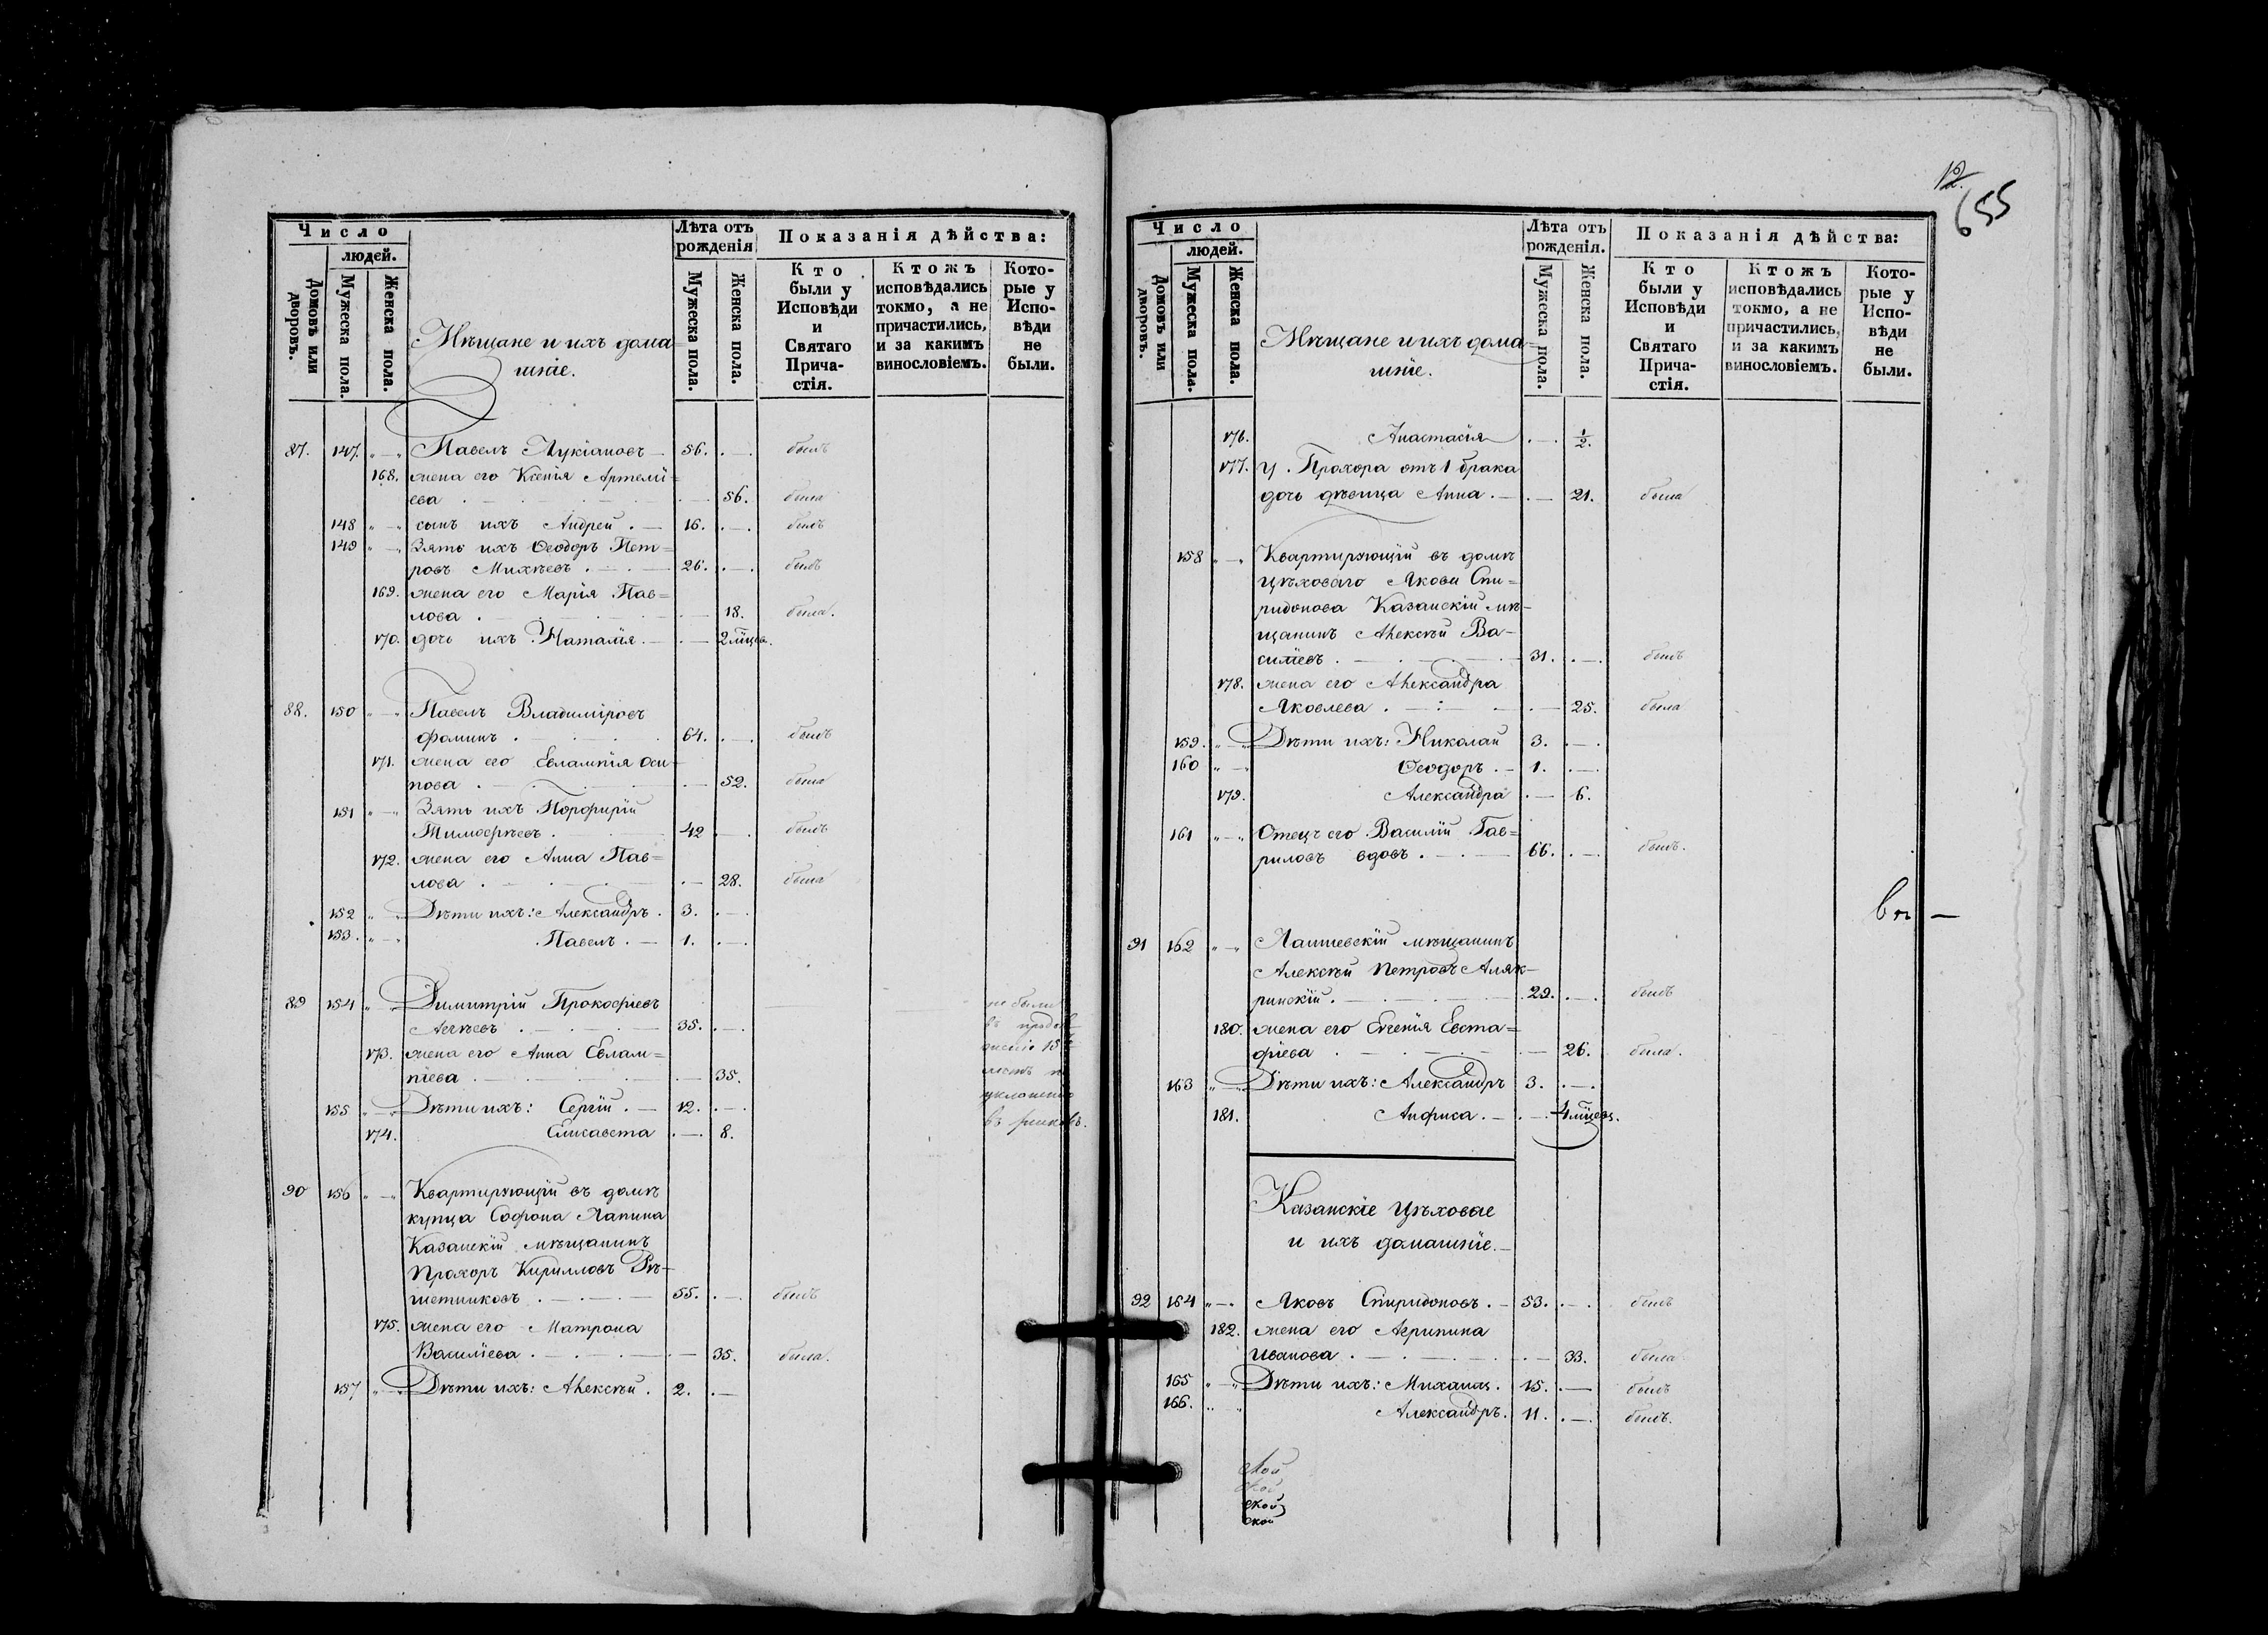 Число
людей.
Домовъ или дворовъ.
Мужеска пола.
Женска пола.
Мѣщане и ихъ дома=
шніе.
Лѣта отъ
рожденія
Мужеска пола.
Женска пола.
Показанія дѣйства:
Кто были у Исповѣди и Святаго Прича-стія.
Ктожъ исповѣдались токмо, а не причастились, и за какимъ винословіемъ.
Кото-рые у Испо-вѣди не были.
87. 147. „ — „ Павелъ Лукіановъ — 56. . — . былъ
168. жена его Ксенія Артемі=
ева . — . — 56. была
148 „ — „ сынъ ихъ Андрей . — 16. . — . былъ
149 „ — „ Зять ихъ Ѳеодоръ Пет=
ровъ Михѣевъ . — . — 26. . — . былъ
169. жена его Марія Пав=
лова . — 18. была.
170. дочь ихъ Наталія . — . — 2 мѣсев.
88. 150 „ — „ Павелъ Владиміровъ
Фоминъ . — 64. . — . былъ
171. жена его Евлампія Оси=
пова . — 52. была
151 „ — „ Зять ихъ Порфирій
Тимоѳѣевъ . — 42 . — . былъ
172. жена его Анна Пав=
лова . — . — 28. была
152 „ — „ Дѣти ихъ: Александръ . 3. . — .
153. „ — „ Павелъ . — 1. . — .
89 154 „ — „ Димитрій Прокофіевъ
35. . — . не были
173. жена его Анна Евлам=
піева . — . — 35.
155 „ — „ Дѣти ихъ: Сергій . — 12. . — .
174. Елисавета . — . 8.
90 156 „ — „ Квартирующій въ домѣ
купца Софона Лапина
Казанскій мѣщанинъ
Прохоръ Кирилловъ Рѣ=
шетниковъ . — . — 55. . — . былъ
175. жена его Матрона
Василіева . — . — 35. была.
157 „ — „ Дѣти ихъ: Алексѣй . 2. . —
655
Число
людей.
Домовъ или дворовъ.
Мужеска пола.
Женска пола.
Мѣщане и ихъ дома=
шніе.
Лѣта отъ
рожденія.
Мужеска пола.
Женска пола.
Показанія дѣйства:
Кто были у Исповѣди и Святаго Прича-стія.
Ктожъ исповѣдались токмо, а не причастились, и за какимъ винословіемъ.
Кото-рые у Испо-вѣди не были.
176. Анастасія . — . 1/2.
177. У Прохора отъ 1 брака
дочь дѣвица Анна . — . — 21. была
158 „ — „ Квартирующій въ домѣ
цѣховаго Якова Спи=
ридонова Казанскій мѣ=
щанинъ Алексѣй Ва=
силіевъ . — . — 31. . — . былъ
178. жена его Александра
Яковлева . — : — . — 25. была
159. „ — „ Дѣти ихъ: Николай 3. . — .
160 „ — „ Ѳеодоръ . — 1. . — .
179. Александра . — 6.
161 „ — „ Отецъ его Василій Гав=
риловъ вдовъ . — . — 66. . — . былъ.
91 162 „ — „ Лаишевскій мѣщанинъ
Алексѣй Петровъ Аляк=
ринскій . — . — 29. . — . былъ
180. жена его Евгенія Евста=
фіева . — . — 26. была.
163 „ — „ Дѣти ихъ: Александръ 3. . — .
181. Анфиса . — . — 4 мѣсев.
Казанскіе Цѣховые
и ихъ домашніе. —
92 164 „ — „ Яковъ Спиридоновъ . — 53. . — . былъ
182. жена его Агрипина
Иванова . — . — 33. была
165 „ — „ Дѣти ихъ: Михаил. 15. . — былъ
166. „ „ Александръ. 11. . — . былъ.
ской
ской